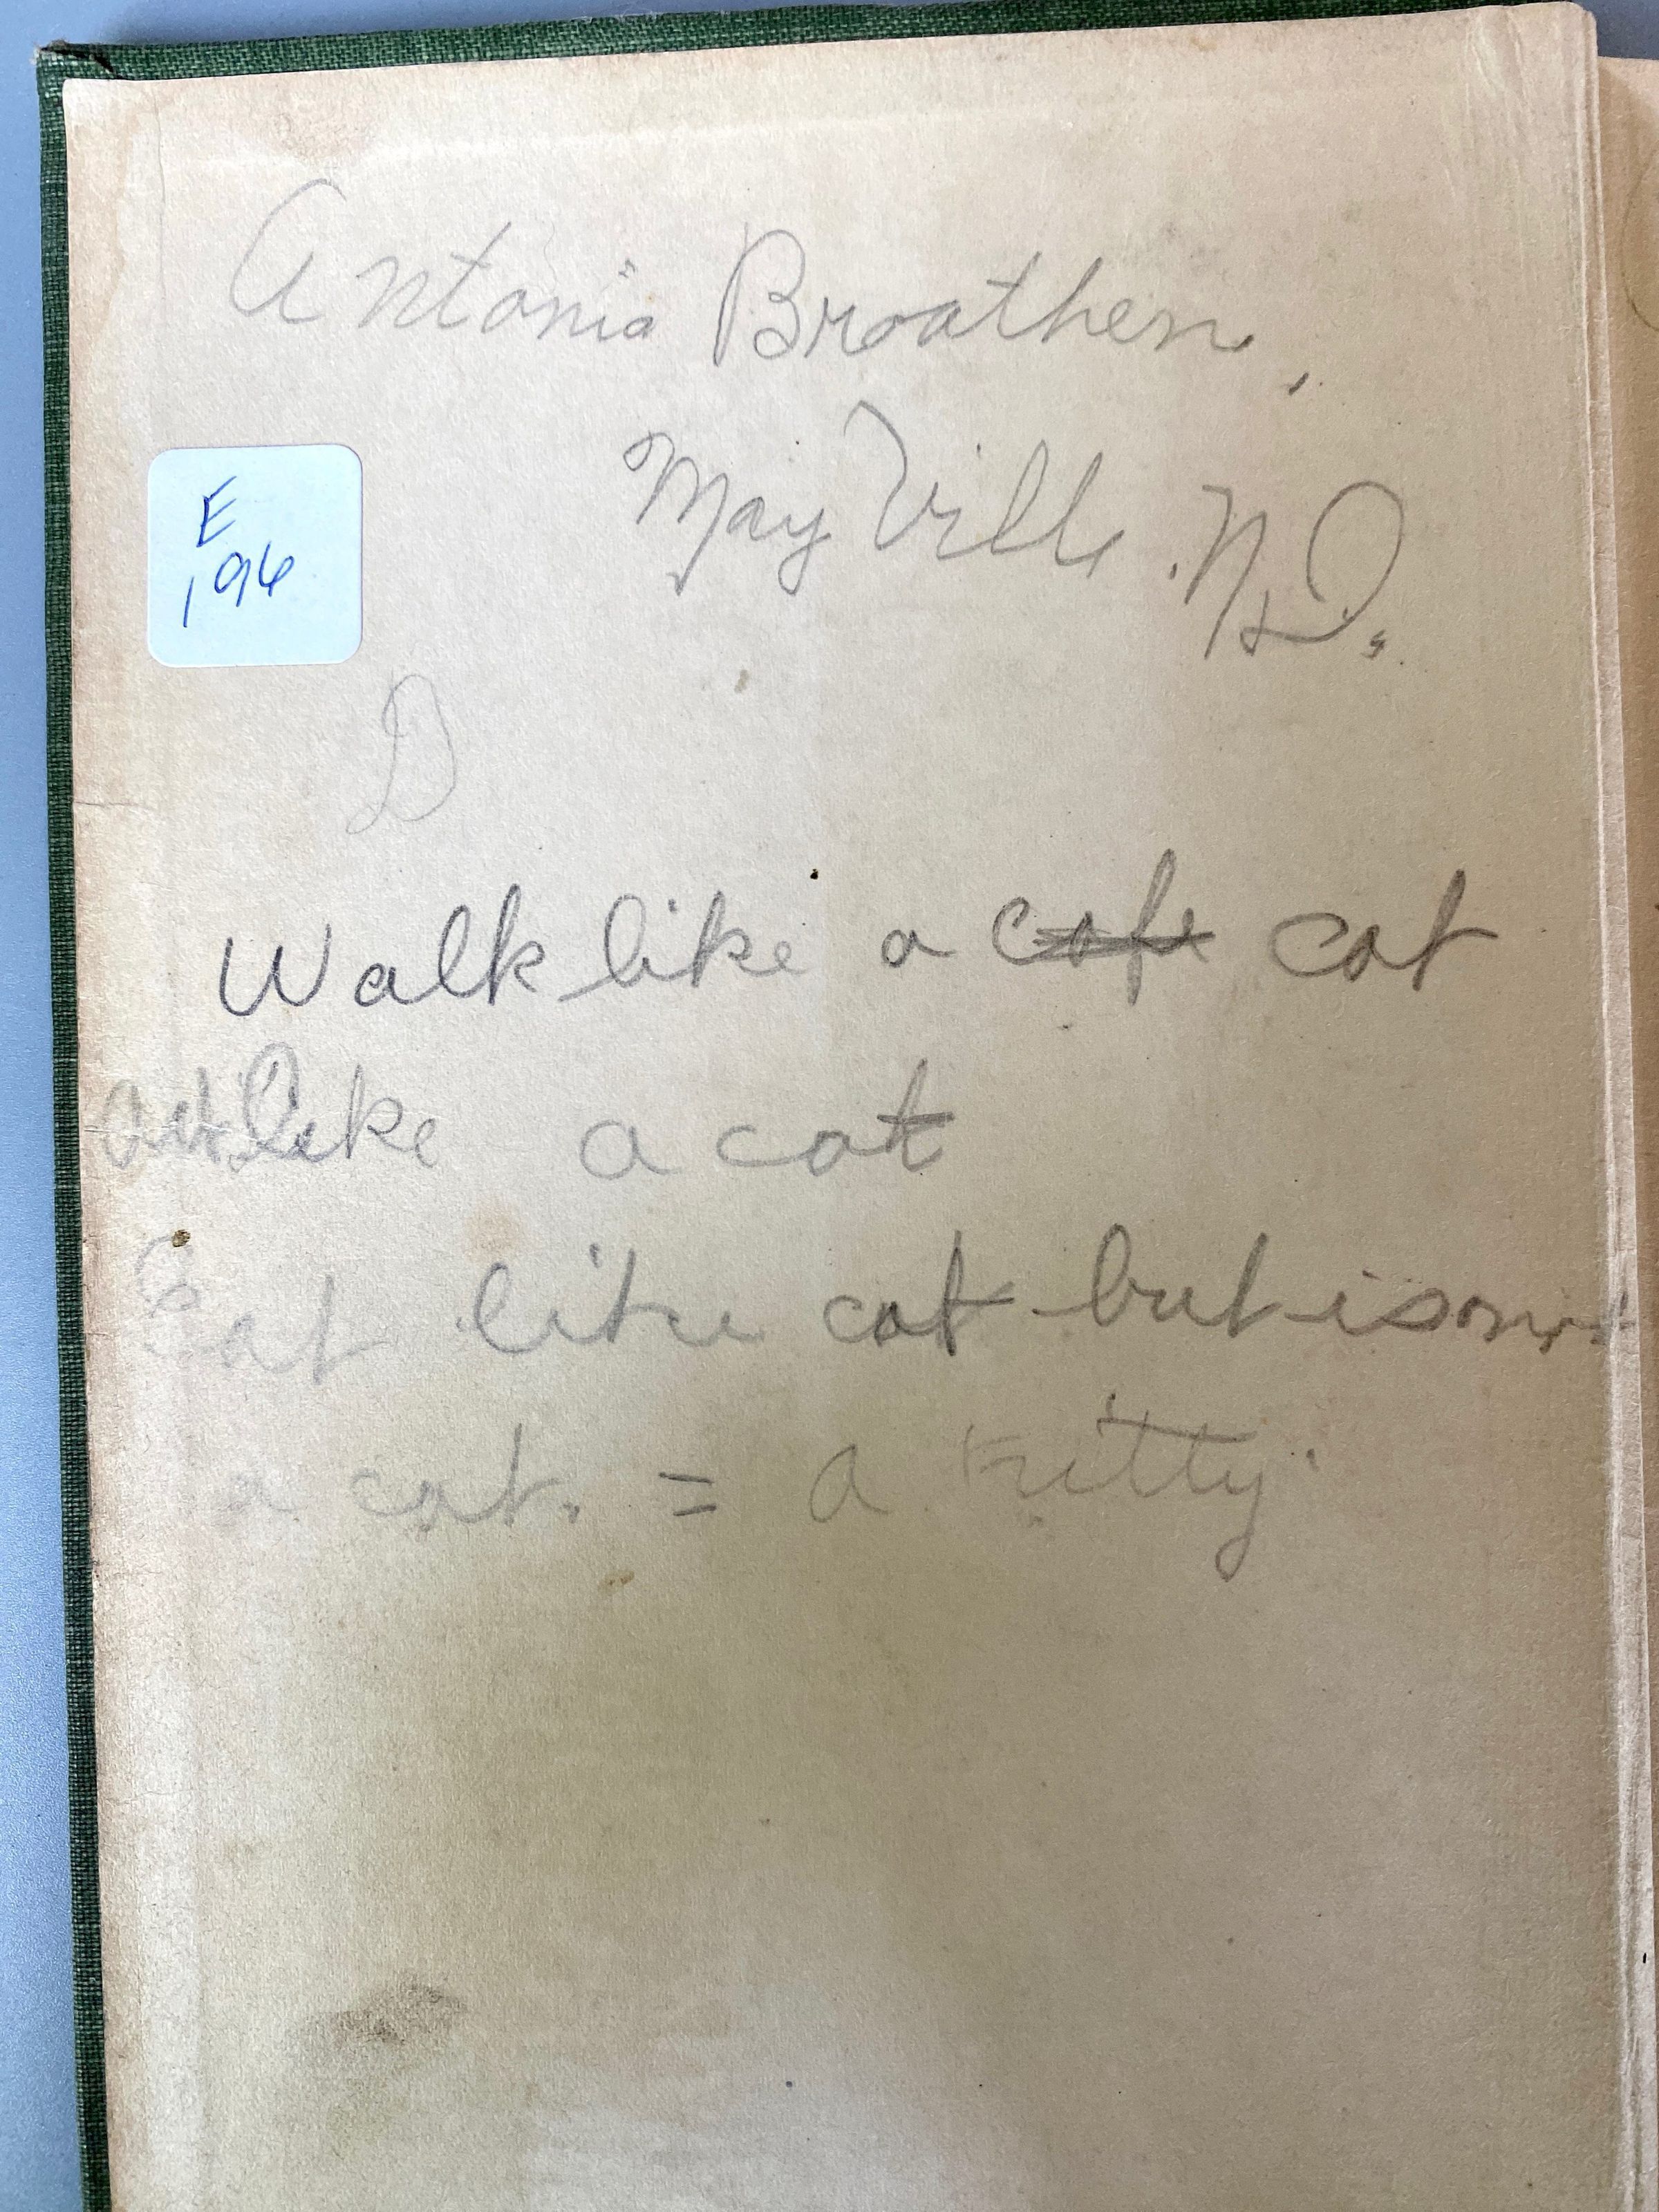 Antonia Broathen,
May Ville . N. D.
E
196
D
Walk like a cafe cat
Act like a cat
Eat like cat but is not
a cat. = a kitty.